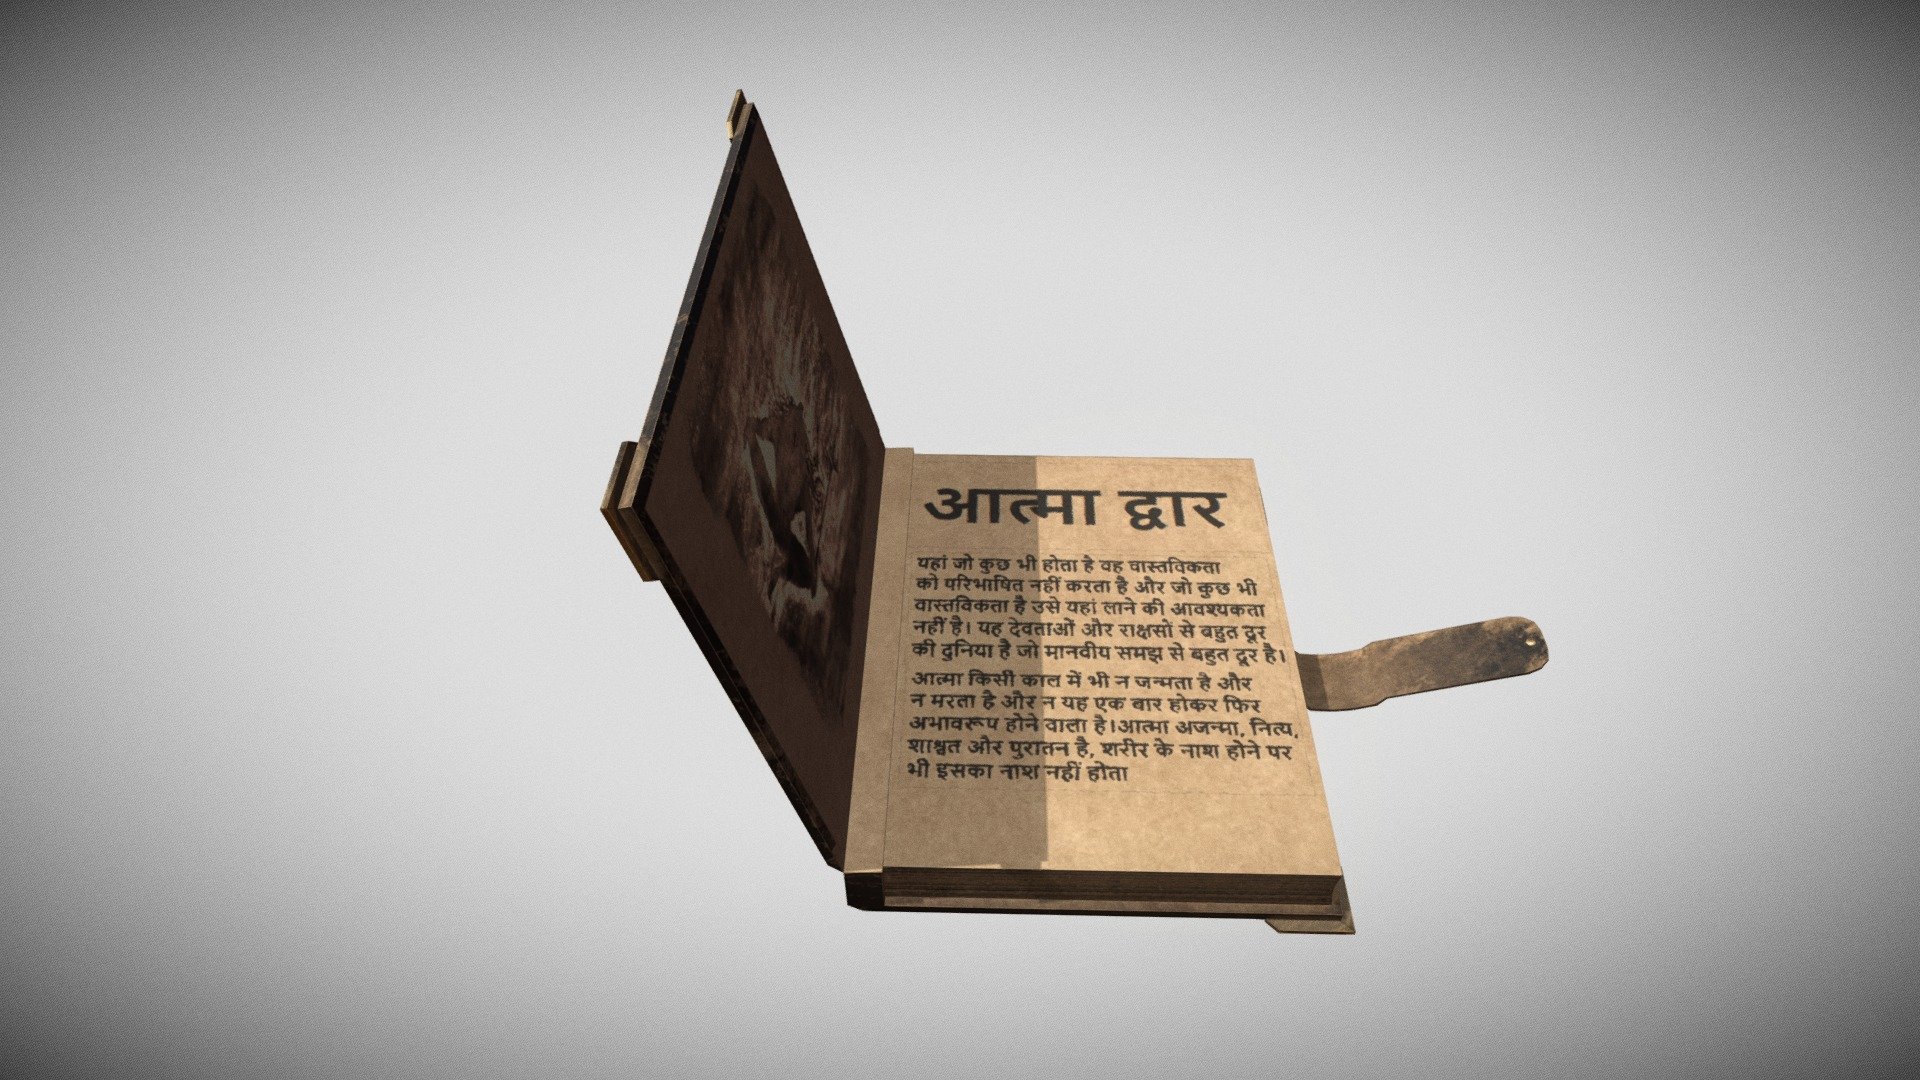 आत्मा द्वार
यहां जो कुछ भी होता है वह वास्तविकता
को परिभाषित नहीं करता है और जो कुछ भी
वास्तविकता है उसे यहां लाने की आवश्यकता
नहीं है। यह देवताओं और राक्षसों से बहुत दूर
की दुनिया है जो मानवीय समझ से बहुत दूर है।
आत्मा किसी काल में भी न जन्मता है और
न मरता है और न यह एक बार होकर फिर
अभावरूप होने वाला है।आत्मा अजन्मा, नित्य,
शाश्वत और पुरातन है, शरीर के नाश होने पर
भी इसका नाश नहीं होता